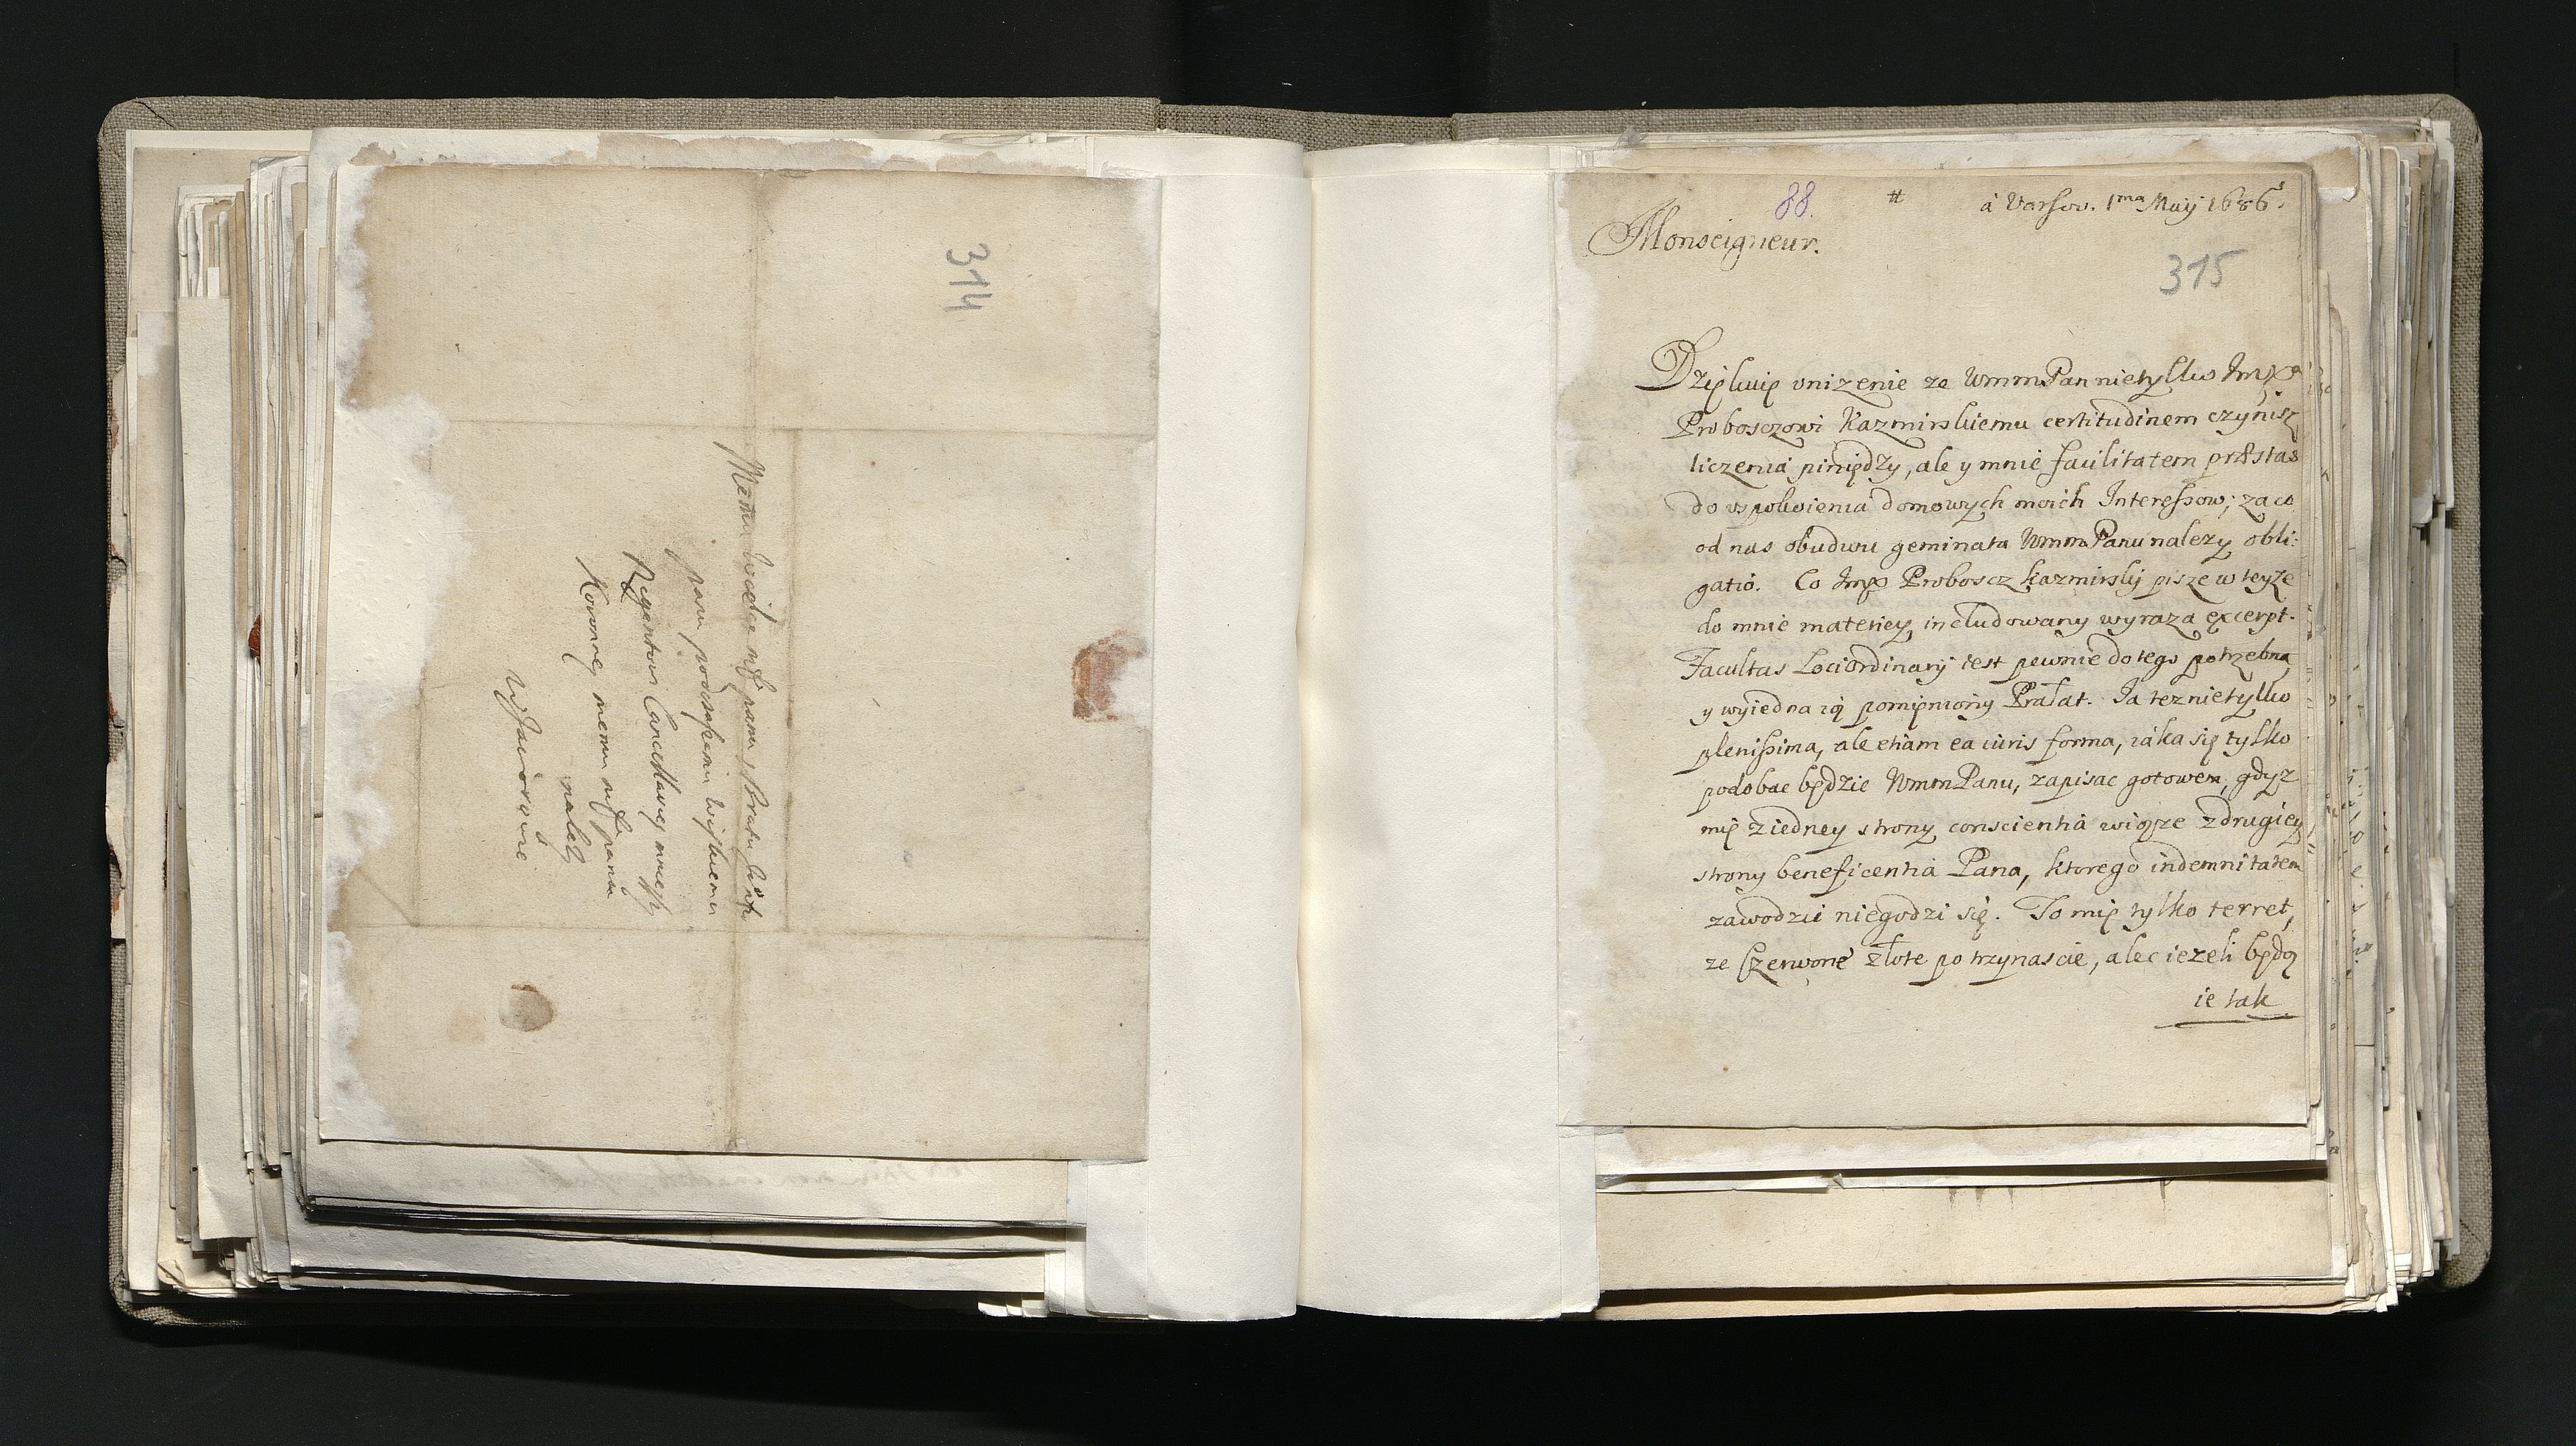 314
Memu wielce msć panu y Bratu Jemsc
panu podczaszemu wisskiemu
Regentowi Cancellariey mnieysz
Koronney memu msć panu
nalezy
W Jaworowie
88. # à Varsov. 1ma Maij 1686.
Monseigneur.
315
Dziękuię vnizenie ze WmmPan nietylko ImX
Proboszczowi Kazmirskiemu certitudinem czynisz
liczenia piniędzy, ale y mnie facilitatem præstas
do vspokoienia domowych moich Interessow; za co
od nas obudwu geminata WmmPanu nalezy obli:
gatio. Co ImX Proboscz kazmirskij pisze w teyze
do mnie materiey, includowany wyraza excerpt.
Facultas Loci Ordinarij iest pewnie do tego potrzebna
y wyiedna ią pomięniony Prałat. Ia tez nietylko
plenissima, ale etiam ea iuris forma, iáka się tylko
podobac będzie WmmPanu, zapisac gotowem, gdyz
mię z iedney strony conscientia wiąze z drugiey
strony beneficentia Pana, ktorego indemnitatem
zawodzic niegodzi się. To mię tylko terret,
ze Czerwone złote po trzynascie, alec iezeli będą
ie tak